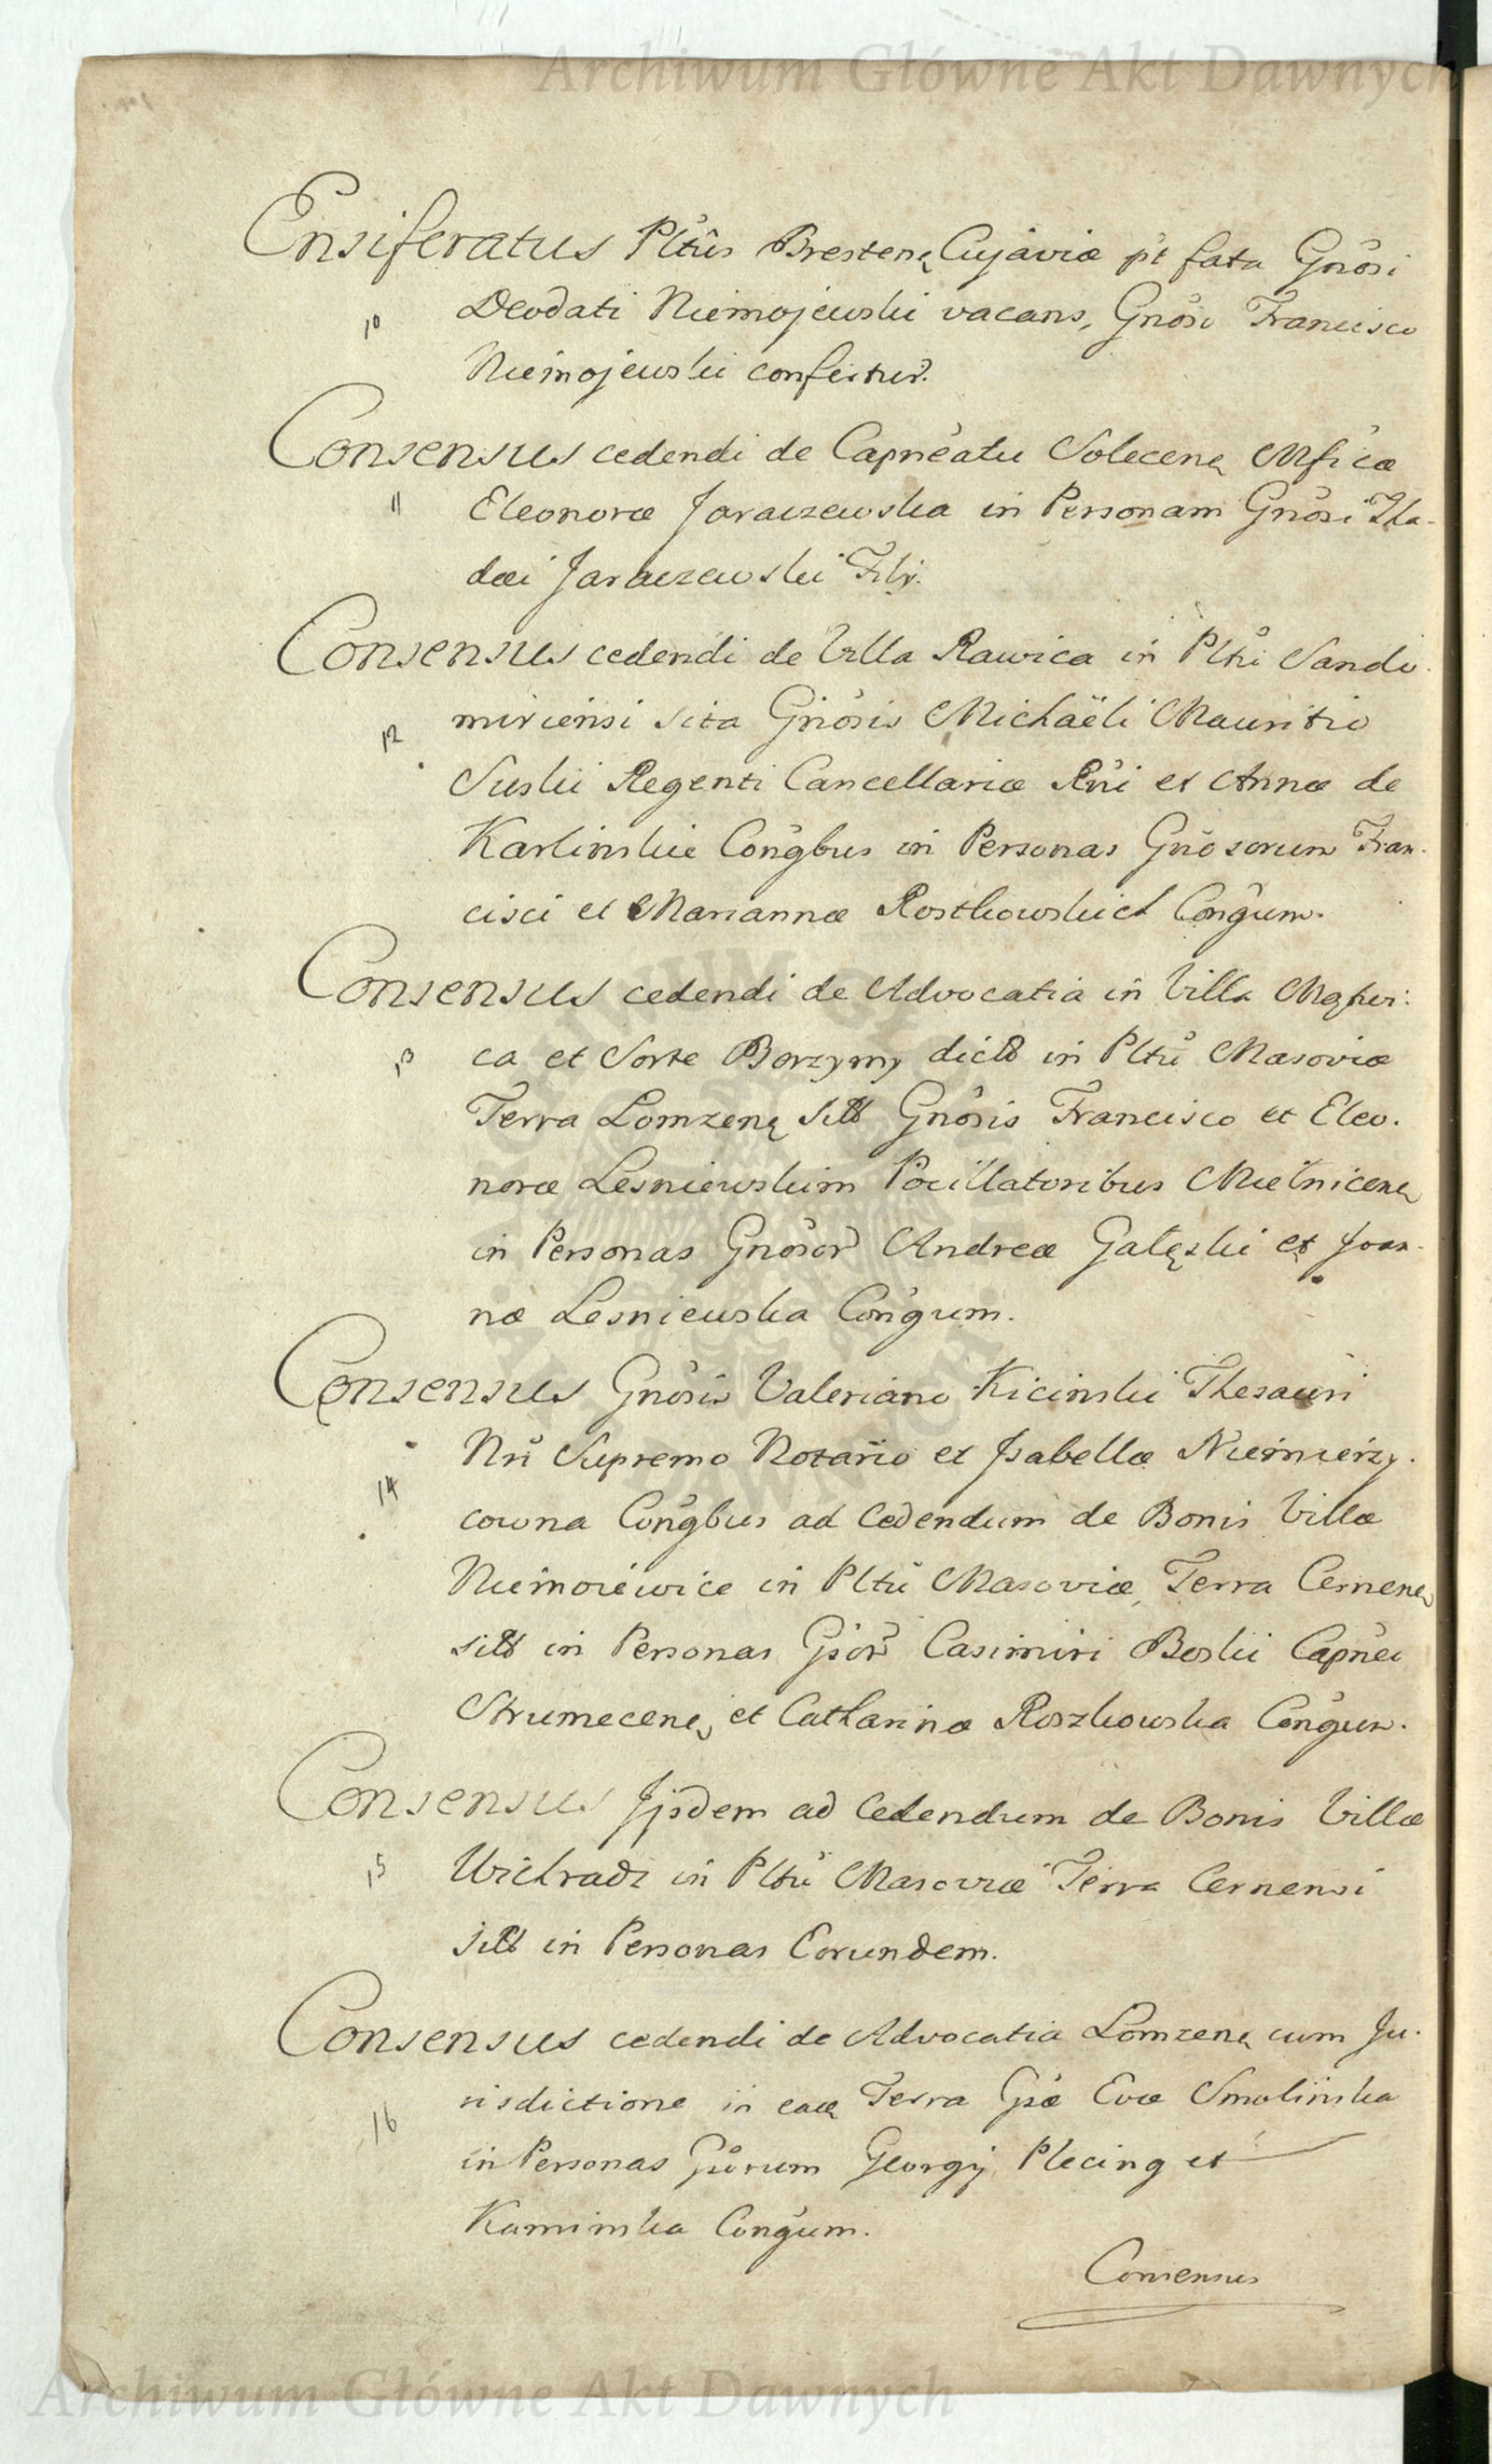 Archiwum Główne Akt Dawnych
Ensiferatus Pltûs Brestenę Cujaviæ pt fata Gnôsi
10 Deodati Niemojewski vacans, Gnôso Francisco
Niemojewski confertur.
Consensus cedendi de Capneatu Solecenę Mficæ
11 Eleonoræ Jaraczewska in Personam Gnôsi Tha-
dæi Jaraczewski Filij.
Consensus cedendi de Villa Rawica in Pltu Sando-
12 miriensi sita Gnôsis Michaëli Mauritio
Suski Regenti Cancellariæ Rni et Annæ de
Karlinskie Congbus in Personas Gnôsorum Fran-
cisci et Mariannæ Rostkowskich Congum.
Consensus cedendi de Advocatia in Villa
13 ca et Sorte Borzymy dictis in Pltu Masoviæ
Terra Lomzenę sitis Gnôsis Francisco et Eleo-
noræ Lesniewskim Pocillatoribus Mielnicenę
in Personas Gnôsor Andreæ Gałęski et Joan-
næ Lesniewska Congum.
Consensus Gnôsis Valeriano Kicinski Thesauri
14 Nri Supremo Notario et Isabellæ Niemierzy-
cowna Congbus ad Cedendum de Bonis Villæ
in Pltu Masoviæ, Terra Cernenę
sitis in Personas Gsor Casimiri Boski Capnei
Strumecenę et Catharinæ Roszkowska Congum.
Consensus Ijsdem ad Cedendum de Bonis Villæ
15 Wichradz in Pltu Masoviæ Terra Cernensi
sitis in Personas Eorundem.
Consensus cedendi de Advocatia Lomzenę cum Ju-
16 risdictione in eaę Terra Gsæ Evæ Smolinska
in Personas Gsorum Georgij Plecing et
Kaminska Congum.
Consensus
Archiwum Główne Akt Dawnych